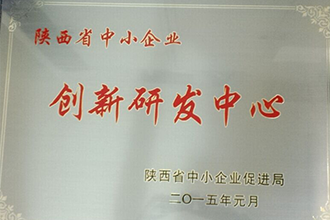 陕西省中小企业
创新研发中心
陕西省中小企业促进局
二〇一五年元月